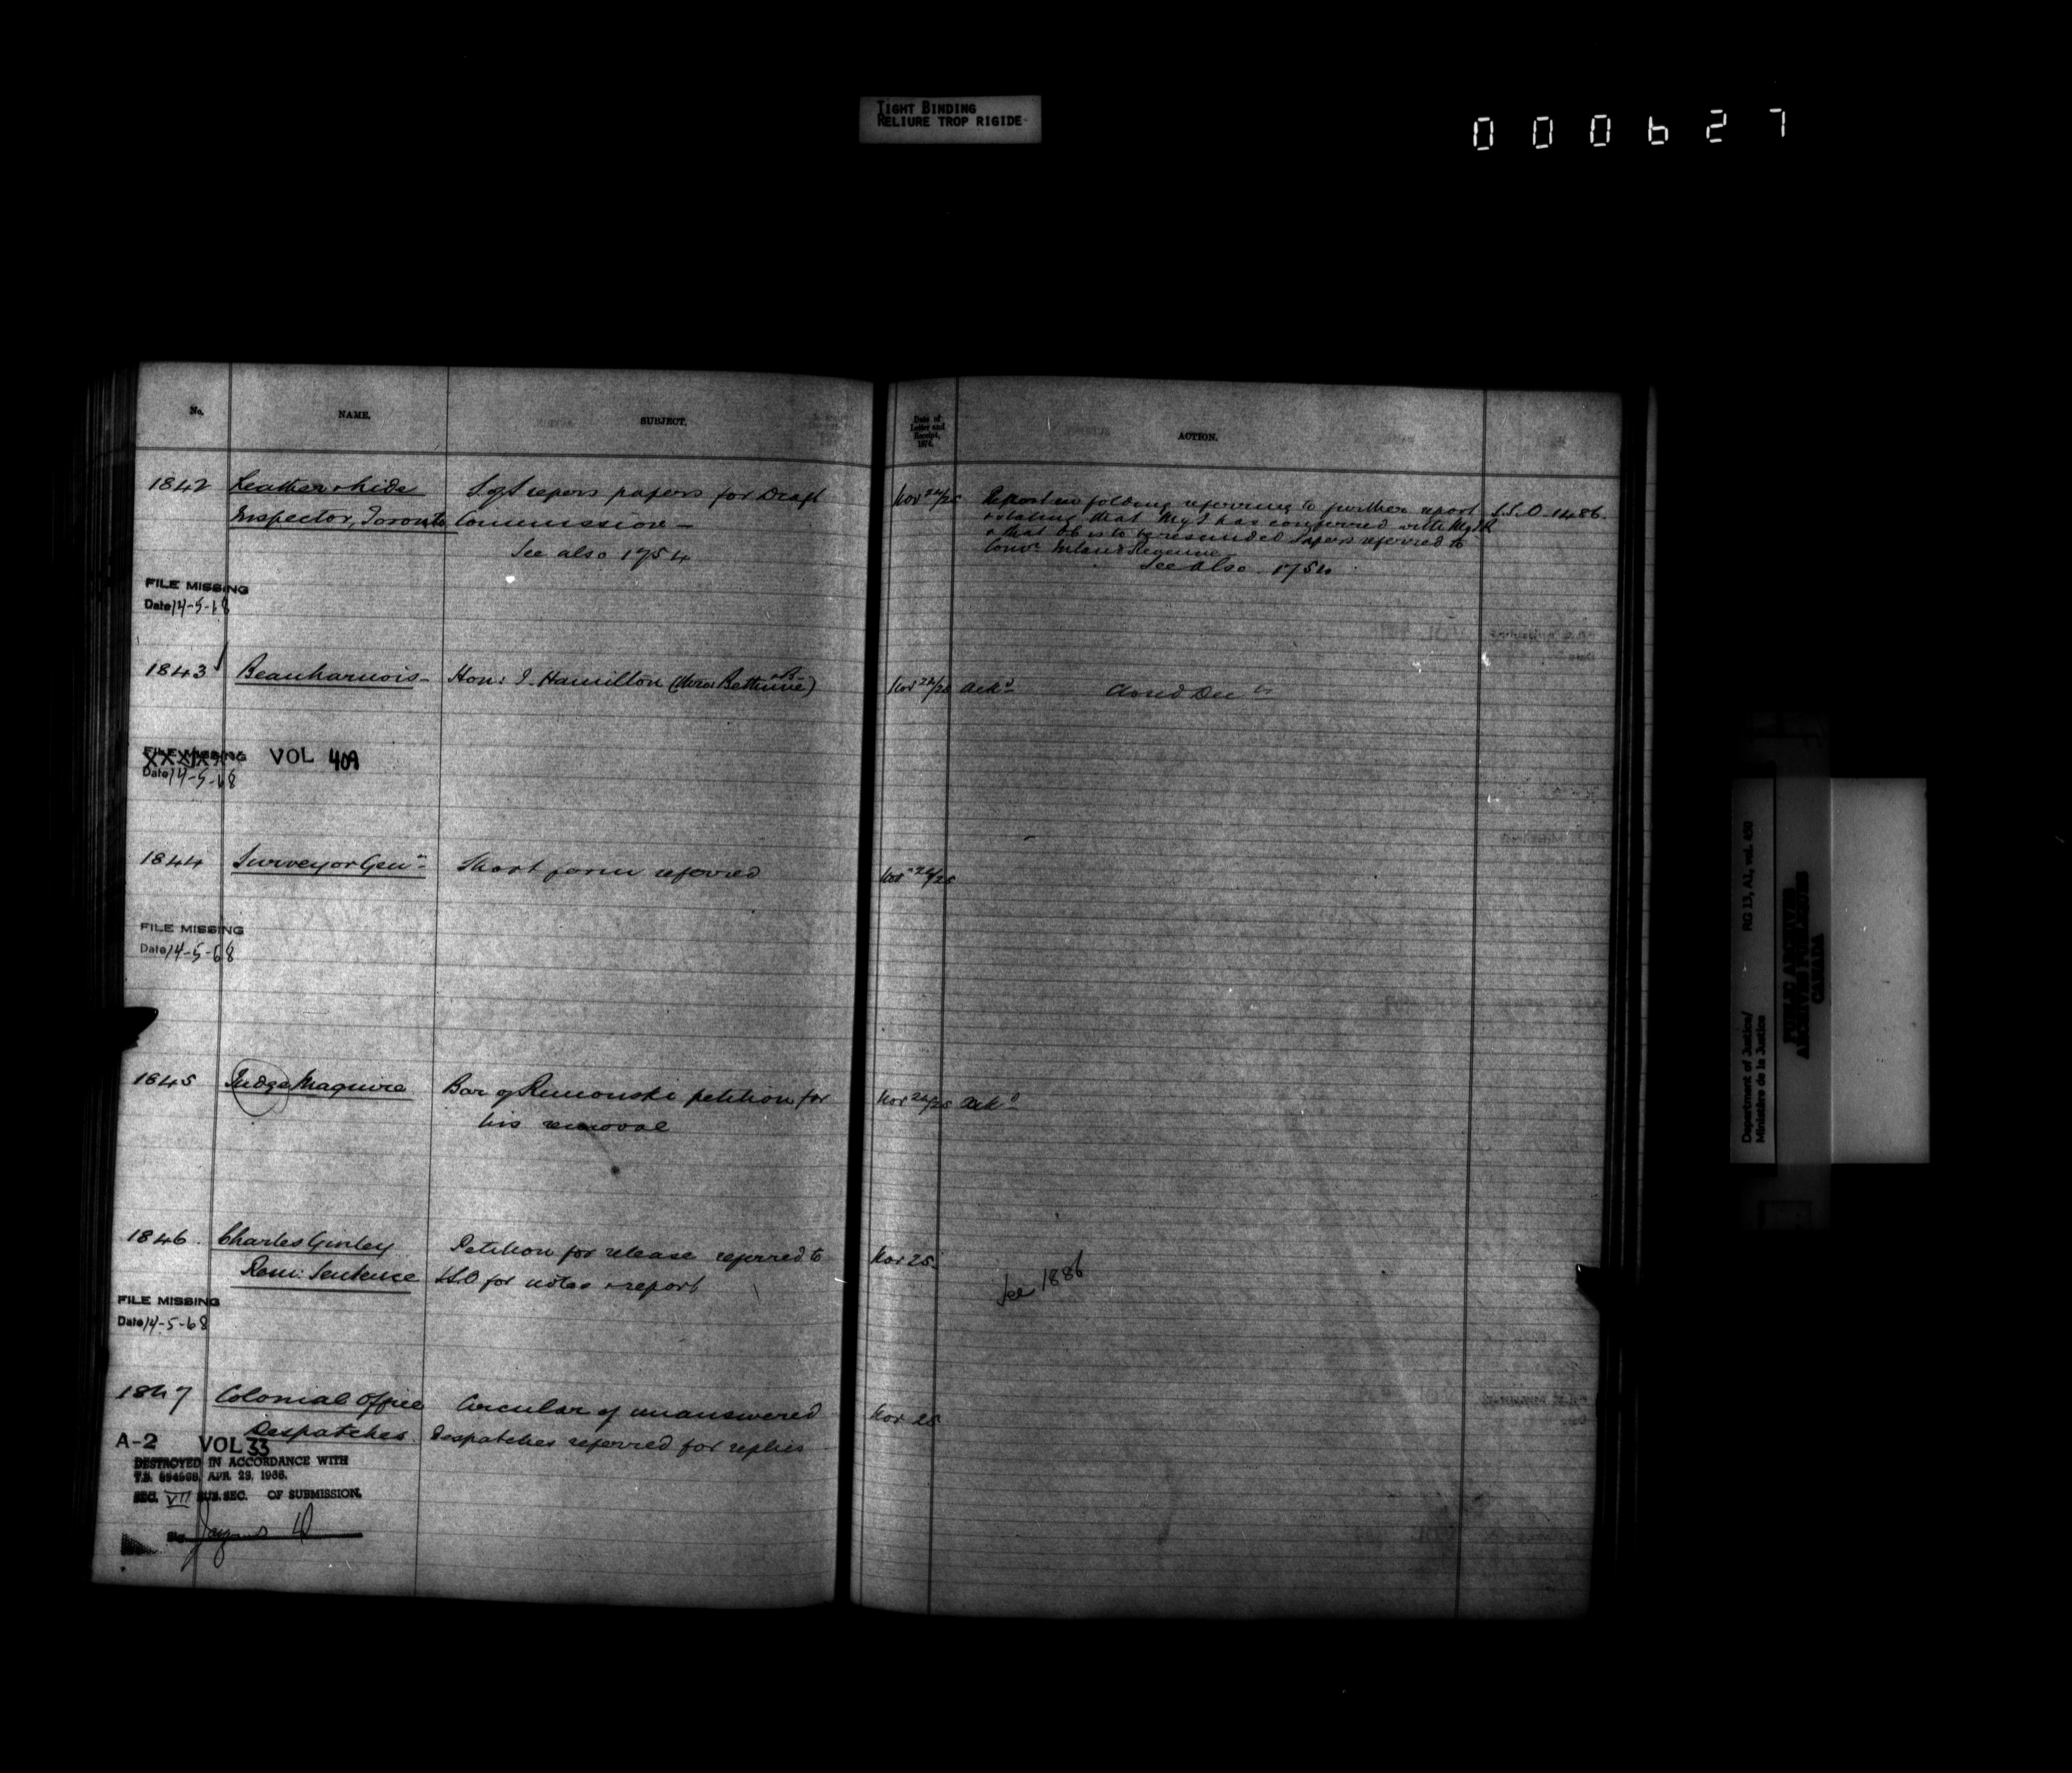 TIGHT BINDING
RELIURE TROP RIGIDE
000627
No.
NAME.
SUBJECT.
Date of
Letter and
Receipt,
1874.
ACTION.
1842 Leather & hide S of S refers papers for Draft
Inspector, Toronto Commission —
See also 1754
Nov 24/25 Report on folding referring to further report
& stating that M of J has conferred with M I R
& that OC is to be rescinded papers referred to
Inland Revenue
See also 1754
S.S.O. 1486.
FILE MISSING
Date 14-5-68
1843 Beauharnois – Hon: J. Hamilton (Bethune)
Nov 24/25 Ackd Closed Dec
FILE MISSING VOL 409
Date 14-5-68
1844 Surveyor Genl Short form referred
Nov 24/25
FILE MISSING
Date 14-5-68
1845 Judge Maguire Bar of Rimouski petition for
his removal
Nov 24/25 Ackd
1846. Charles Ginley Petition for release referred to
Rem: Sentence SSO for notes & report
Nov 25.
See 1886
FILE MISSING
Date 14-5-68
1847 Colonial Office Circular of unanswered
Despatches. Despatches referred for replies
Nov 25
A-2 VOL 33
DESTROYED IN ACCORDANCE WITH
APR. 29, 1966.
SEC. VII SUB. SEC. OF SUBMISSION.
Department of Justice/
Ministère de la Justice
RG 13, A1, vol. 430
PUBLIC ARCHIVES
ARCHIVES PUBLIQUES
CANADA